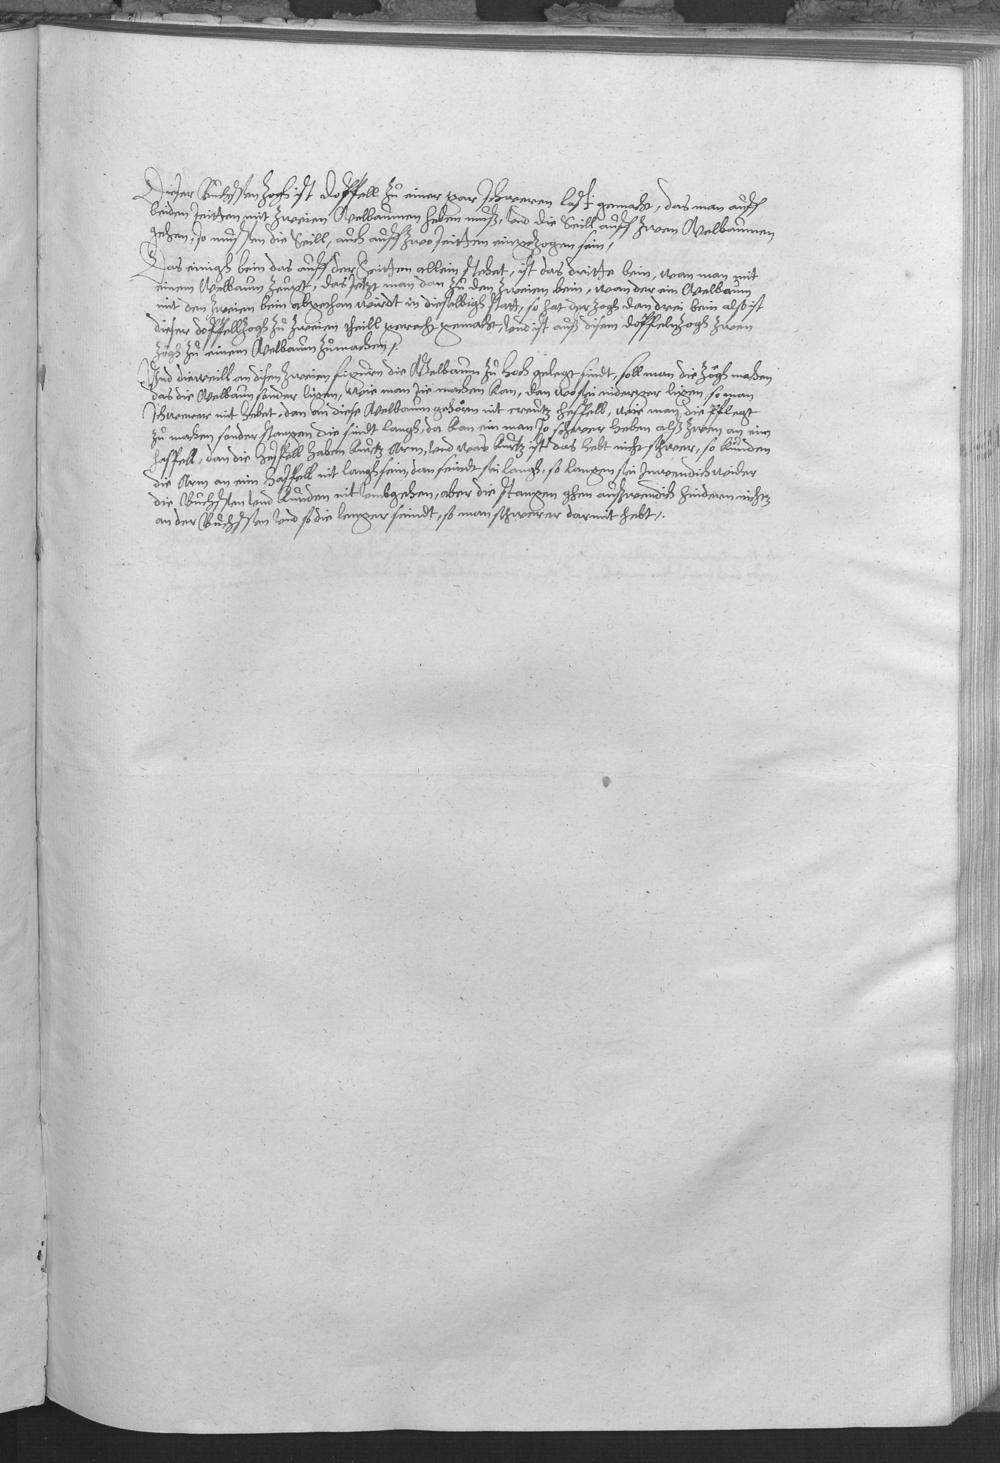 Dieser Buchssen Zogh ist Doppell zu einer gar schweren last gemacht, das man auff
beiden seitten mit zweien Welbaumen heben muß, und die Seill auff zwen Welbaumen
gehen, so mussen die Seill, auch auff zwo seitten eingezogen sein /
Das einigh bein das auff der Seitten allein stehet, ist das dritte bein, wan man mit
einem Welbaum zeugt, das setzt man dan zu den zweien bein, wan der ein Welbaum
mit den zweien bein abgethan wirdt in dieselbigh statt, so hat der zogh dan drei bein also ist
dieser doppell zogh zu zweien theill gerecht gemacht, und ist auß disem doppelen zogh zwen
zögh zu einem Welbaum zumachen /.
Und dieweill an disen zweien figuren die Welbaum zu hoch gelegt sindt, soll man die zögh machen
das die Welbaum sonder ligen, wie man sie machen kan, dan wo sei niderger ligen, so man
schwerer mit hebet, dan an diese Welbaum gehörn nit creutz haspell, wie man die pflegt
zu machen sonder stangen die sindt langh, da kan ein man so schwer heben alß zwen an ein
haspell, dan die haspell haben kurtz Arm, und was kurtz ist das hebt nicht schwer, so kunden
die Arm an ein haspell nit langh sein, dan seindt sei langh, so langen sei Inwendich wider
die Buchssen und kunden nit umbgehen, aber die stangen ghen außwendich hindern nichtz
an der Buchssen und so die lenger seindt, so man schwerer darmit hebt /.